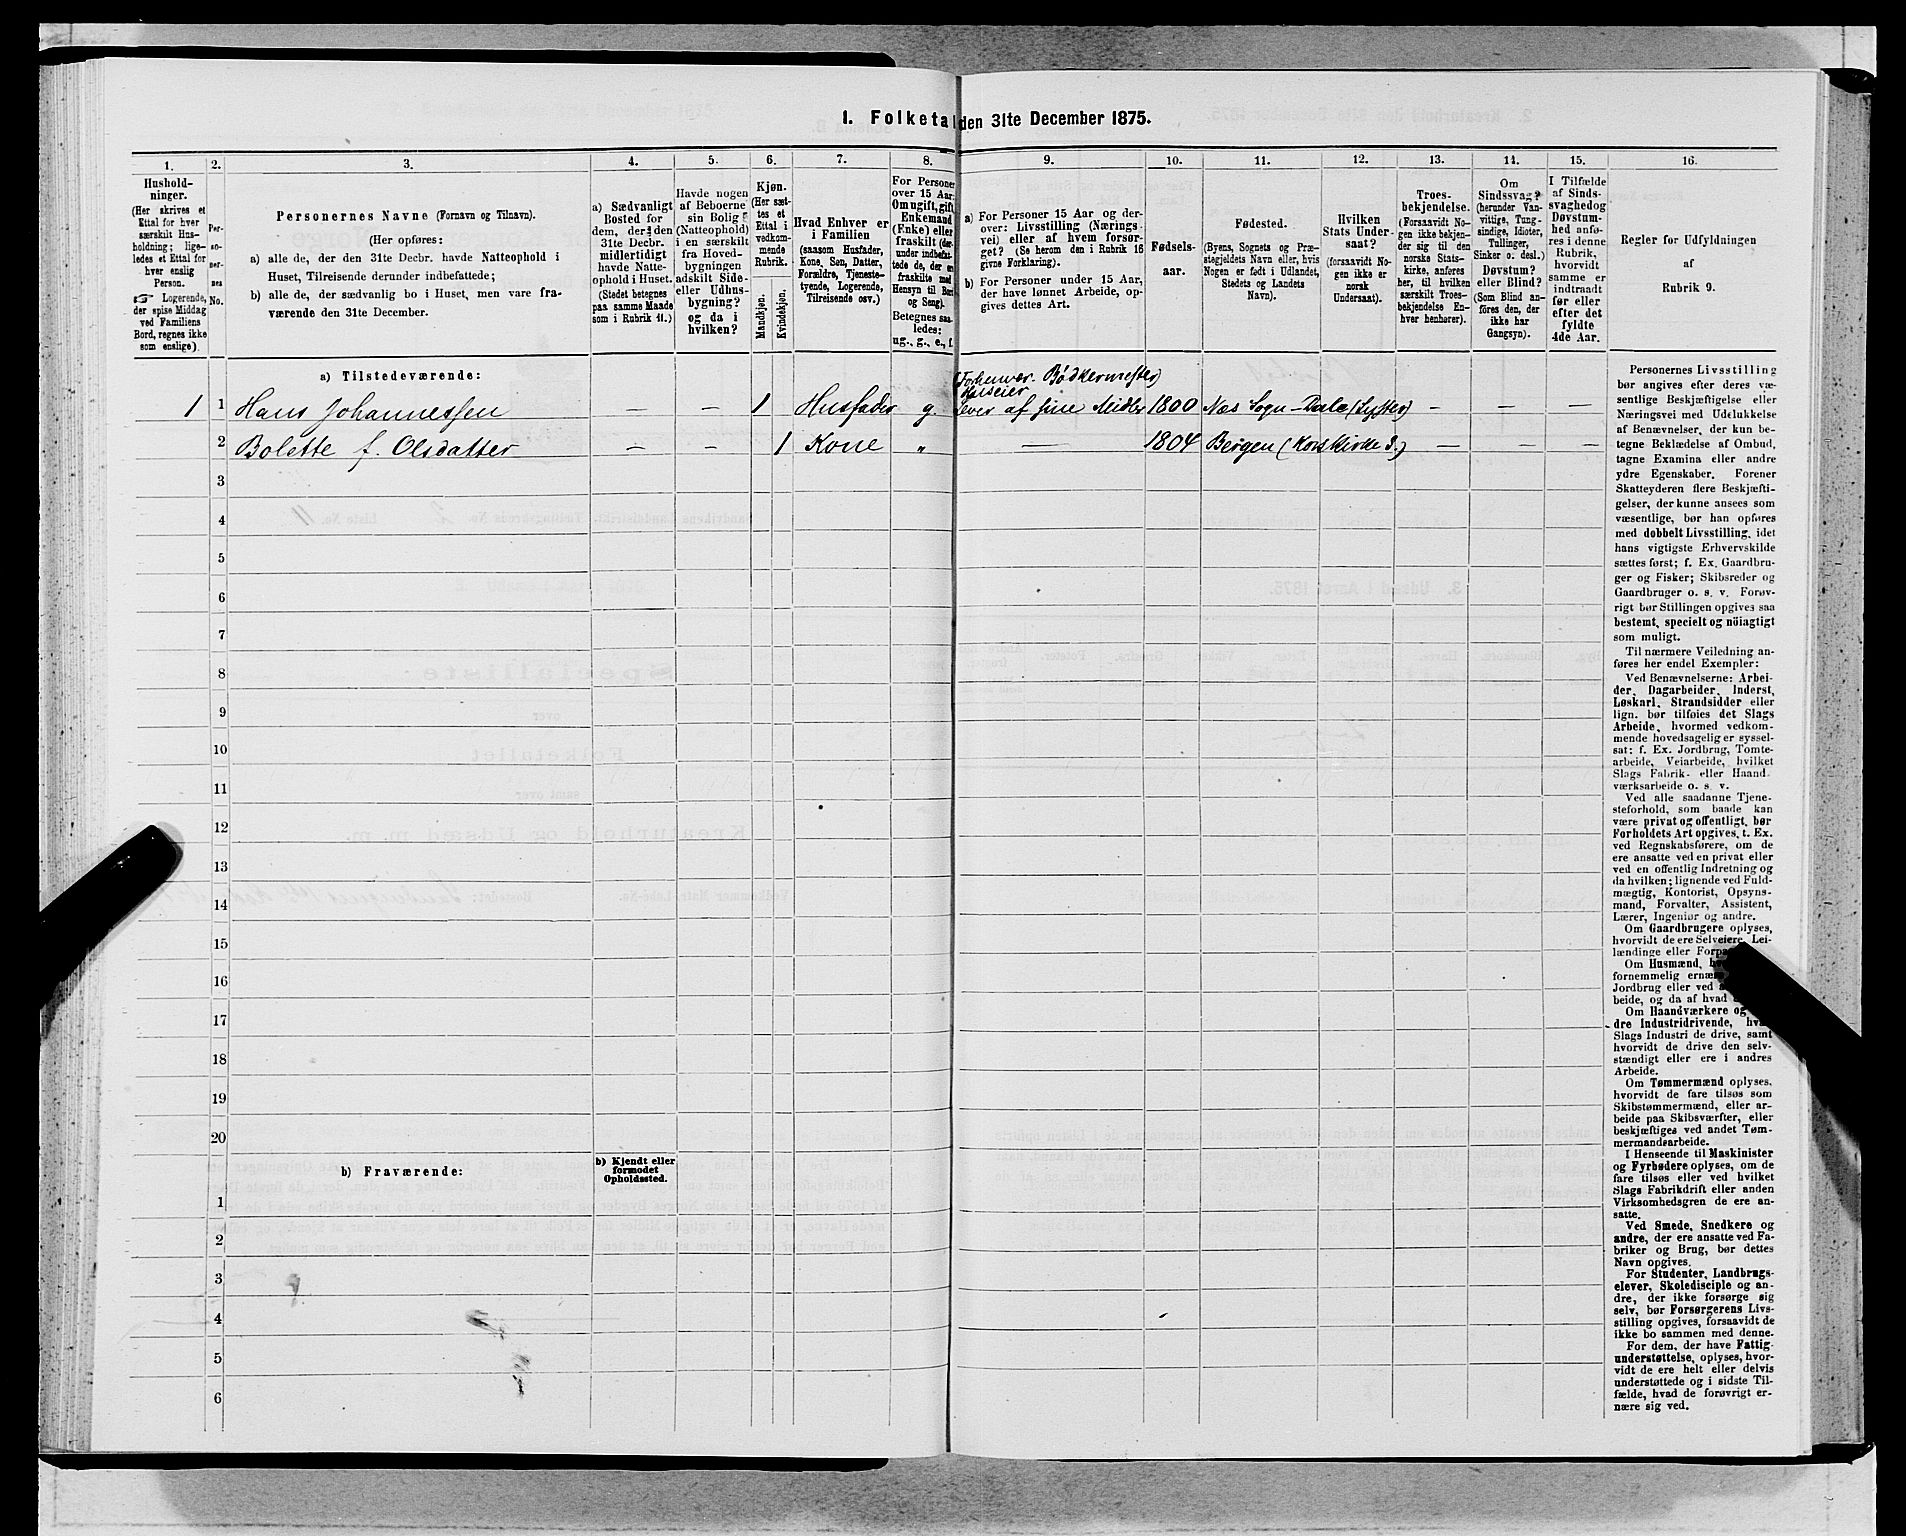 1. Folketal den 31te December 1875.
1. 2. 3. 4. 5. 6. 7. 8. 9. 10. 11. 12. 13. 14. 15. 16.
Hushold-
ninger.
(Her skrives et
Ettal for hver
særskilt Hus-
holdning; lige-
ledes et Ettal for
hver enslig
Person.
☞ Logerende,
der spise Middag
ved Familiens
Bord, regnes ikke
som enslige).
Per-
so-
ner-
nes
No.
Personernes Navne (Fornavn og Tilnavn).
(Her opføres:
a) alle de, der den 31te Decbr. havde Natteophold i
Huset, Tilreisende derunder indbefattede;
b) alle de, der sædvanlig bo i Huset, men vare fra-
værende den 31te December.
a) Sædvanligt
Bosted for
dem, der den
31te Decbr.
midlertidigt
havde Natte-
ophold i Huset.
(Stedet betegnes
paa samme Maade
som i Rubrik 11.)
Havde nogen
af Beboerne
sin Bolig
(Natteophold)
i en særskilt
fra Hoved-
bygningen
adskilt Side-
eller Udhus-
bygning?
og da i
hvilken?
Kjøn.
(Her sæt-
tes et
Ettal i
vedkom-
mende
Rubrik.
Mandkjøn.
Kvindekjøn.
Hvad Enhver er
i Familien
(saasom Husfader,
Kone, Søn, Datter,
Forældre, Tjeneste-
tyende, Logerende,
Tilreisende osv.)
For Personer
over 15 Aar:
Om ugift, gift,
Enkemand
(Enke) eller
fraskilt (der-
under indbefat-
tede de, der er
fraskilte med
Hensyn til Bord
og Seng).
Betegnes saa-
ledes:
ug., g., e., f.
a) For Personer 15 Aar og der-
over: Livsstilling (Nærings-
vei) eller af hvem forsør-
get? (Se herom den i Rubrik 16
givne Forklaring).
b) For Personer under 15 Aar,
der have lønnet Arbeide, op-
gives dettes Art.
Fødsels-
aar.
Fødested.
(Byens, Sognets og Præ-
stegjeldets Navn eller, hvis
Nogen er født i Udlandet,
Stedets og Landets
Navn).
Hvilken
Stats Under-
saat?
(forsaavidt No-
gen ikke er
norsk
Undersaat).
Troes-
bekjendelse.
(Forsaavidt No-
gen ikke bekjen-
der sig til den
norske Stats-
kirke, anføres
her, til hvilken
særskilt Troes-
bekjendelse En-
hver henhører).
Om
Sindssvag?
(herunder Van-
vittige, Tung-
sindige, Idioter,
Tullinger,
Sinker o. desl.)
Døvstum?
eller Blind?
(Som Blind an-
føres den, der
ikke har
Gangsyn).
I Tilfælde
af Sinds-
svaghed og
Døvstum-
hed anfø-
res i denne
Rubrik,
hvorvidt
samme er
indtraadt
før eller
efter det
fyldte
4de Aar.
Regler for Udfyldningen
af
Rubrik 9.
a) Tilstedeværende:
(Forhenver. Bødkermester)
Huseier
1 1 Hans Johannessen – – 1 Husfader g. Lever af sine Midler 1800 Næs Sogn – Dale (Lyster) – – –
2 Bolette f. Olsdatter – – 1 Kone " – 1804 Bergen (Korskirke S.) – – –
3
4
5
6
7
8
9
10
11
12
13
14
15
16
17
18
19
20
b) Fraværende:
b) Kjendt eller
formodet
Opholdssted.
1
2
3
4
5
6
Personernes Livsstilling
bør angives efter deres væ-
sentlige Beskjæftigelse eller
Næringsvei med Udelukkelse
af Benævnelser, der kun be-
tegne Beklædelse af Ombud,
tagne Examina eller andre
ydre Egenskaber. Forener
Skatteyderen flere Beskjæfti-
gelser, der kunne ansees som
væsentlige, bør han opføres
med dobbelt Livsstilling, idet
hans vigtigste Erhvervskilde
sættes først; f. Ex. Gaardbru-
ger og Fisker; Skibsreder og
Gaardbruger o. s. v. Forøv-
rigt bør Stillingen opgives saa
bestemt, specielt og nöiagtigt
som muligt.
Til nærmere Veiledning an-
føres her endel Exempler:
Ved Benævnelserne: Arbei-
der, Dagarbeider, Inderst,
Løskarl, Strandsidder eller
lign. bør tilføies det Slags
Arbeide, hvormed vedkom-
mende hovedsagelig er syssel-
sat: f. Ex. Jordbrug, Tomte-
arbeide, Veiarbeide, hvilket
Slags Fabrik- eller Haand-
værksarbeide o. s. v.
Ved alle saadanne Tjene-
steforhold, som baade kan
være privat og offentligt, bør
Forholdets Art opgives, t. Ex.
ved Regnskabsførere, om de
ere ansatte ved en privat eller
ved en offentlig Indretning og
da hvilken; lignende ved Fuld-
mægtig, Kontorist, Opsyns-
mand, Forvalter, Assistent,
Lærer, Ingeniør og andre.
Om Gaardbrugere oplyses,
hvorvidt de ere Selveiere, Lei-
lændinge eller
Om Husmænd,
fornemmelig
Jordbrug eller ved
beide, og da af hvad
Om Haandværkere og
dre Industridrivende,
Slags Industri de drive, samt
hvorvidt de drive den selv-
stændigt eller ere i andres
Arbeide.
Om Tømmermænd oplyses,
hvorvidt de fare tilsøs som
Skibstømmermænd, eller ar-
beide paa Skibsværfter, eller
beskjæftiges ved andet Tøm-
mermandsarbeide.
I Henseende til Maskinister
og Fyrbødere oplyses, om de
fare tilsøs eller ved hvilket
Slags Fabrikdrift eller anden
Virksomhedsgren de ere an-
satte.
Ved Smede, Snedkere og
andre, der ere ansatte ved Fa-
briker og Brug, bør dettes
Navn opgives.
For Studenter, Landbrugs-
elever, Skoledisciple og an-
dre, der ikke forsørge sig
selv, bør Forsørgerens Livs-
stilling opgives, forsaavidt de
ikke bo sammen med denne.
For dem, der have Fattig-
understøttelse, oplyses, hvor-
vidt de ere helt eller delvis
understøttede og i sidste Til-
fælde, hvad de forøvrigt er-
nære sig ved.